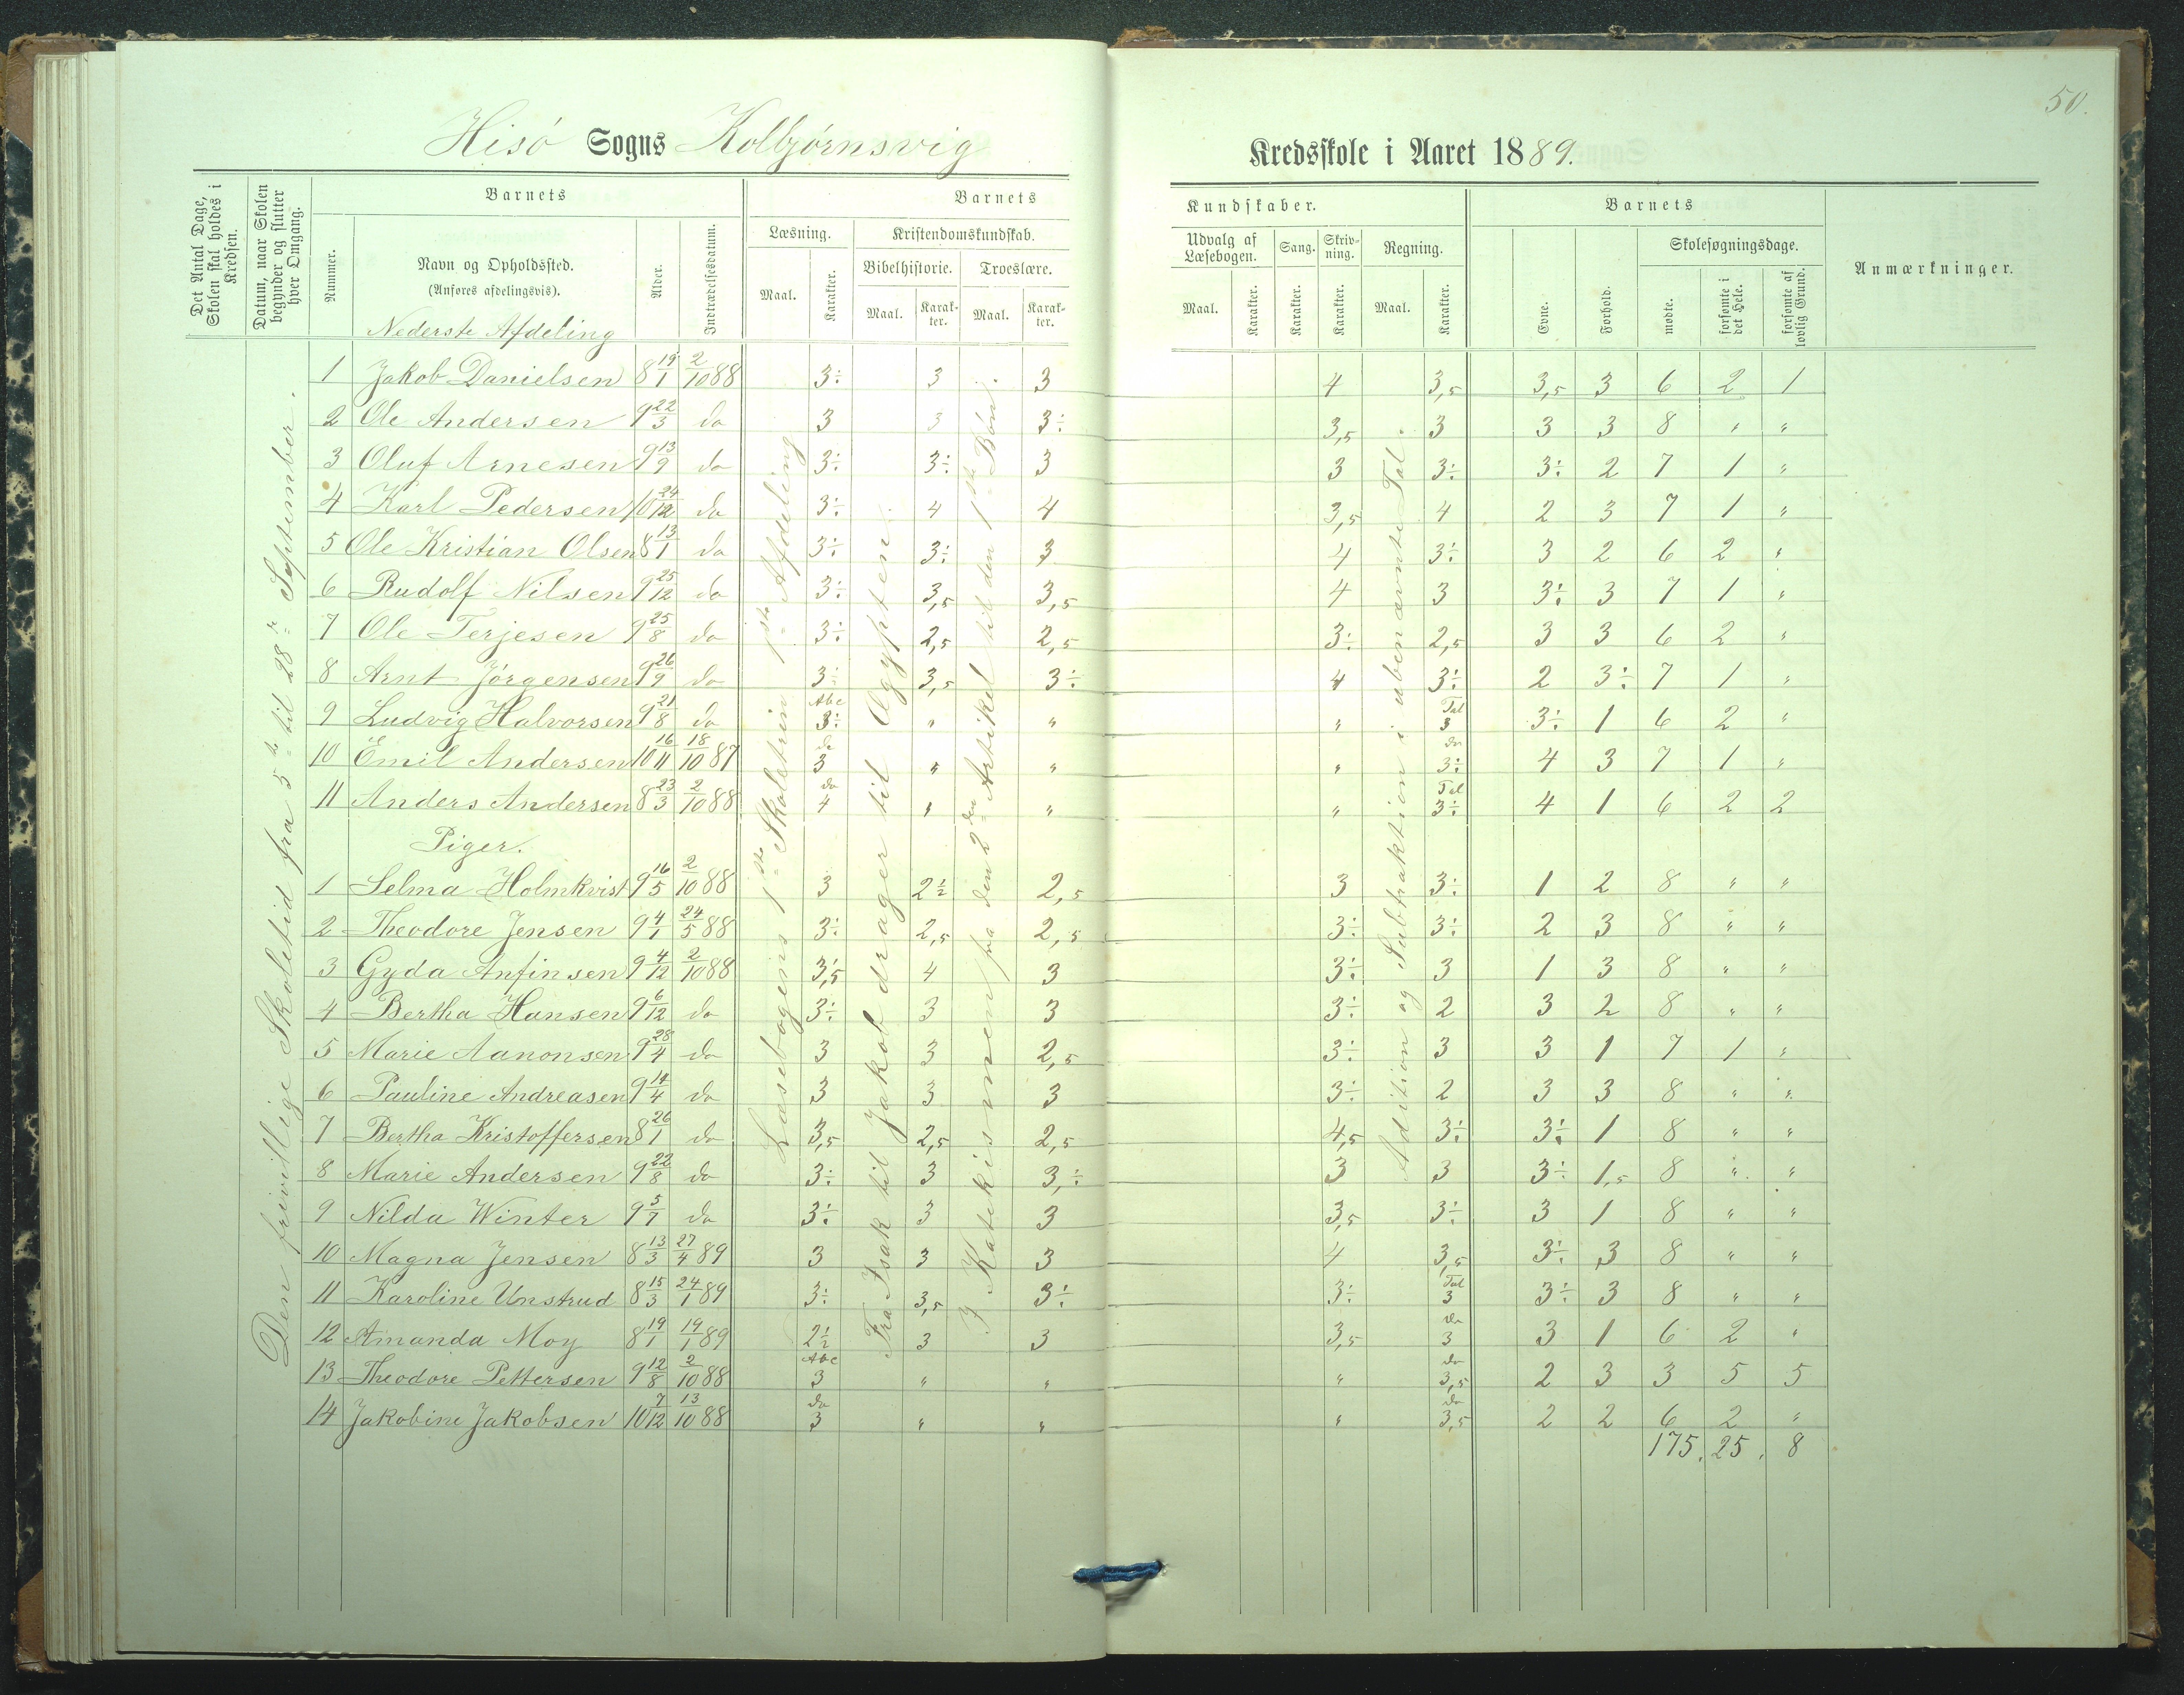 50.
Hisö Sogns Kolbjörnsvig Kredsskole i Aaret 1889.
Det Antal Dage, Skolen skal holdes i Kredsen.
Datum, naar Skolen begynder og slutter hver Omgang.
Barnets
Nummer.
Navn og Opholdssted.
(Anføres afdelingsvis).
Nederste Afdeling
Alder.
Indtrædelsesdatum.
Barnets Kundskaber.
Læsning.
Maal.
Karakter.
Kristendomskundskab.
Bibelhistorie.
Maal.
Karakter.
Troeslære.
Maal.
Karakter.
Udvalg af Læsebogen.
Maal.
Karakter.
Sang.
Karakter.
Skrivning.
Karakter.
Regning.
Maal.
Karakter.
Barnets
Evne.
Forhold.
Skolesøgningsdage.
mødte.
forsømte i det Hele.
forsømte af lovlig Grund.
Anmærkninger.
Den frivillige Skoletid fra 5te til 28de September.
Læsebogens 1ste Skoletrin 1ste Afdeling
Fra Isak til Jakob drager til Ægypten
I Katekismen fra den 2den Artikel til den 1ste Bön
Adition og Subtraktion i ubenævnte Tal.
1 Jakob Danielsen 8 19/1 2/10 88 3÷ 3 3 4 3,5 3,5 3 6 2 1
2 Ole Andersen 9 22/3 do 3 3 3÷ 3,5 3 3 3 8 " "
3 Oluf Arnesen 9 13/9 do 3÷ 3÷ 3 3 3÷ 3÷ 2 7 1 "
4 Karl Pedersen 10 24/12 do 3÷ 4 4 3,5 4 2 3 7 1 "
5 Ole Kristian Olsen 8 13/1 do 3÷ 3÷ 3 4 3÷ 3 2 6 2 "
6 Rudolf Nilsen 9 25/12 do 3÷ 3,5 3,5 4 3 3÷ 3 7 1 "
7 Ole Terjesen 9 25/8 do 3÷ 2,5 2,5 3÷ 2,5 3 3 6 2 "
8 Arnt Jörgensen 9 26/9 do 3÷ 3,5 3÷ 4 3÷ 2 3÷ 7 1 "
9 Ludvig Halvorsen 9 21/8 do Abc 3÷ " " " Tal 3 3÷ 1 6 2 "
10 Emil Andersen 10 16/11 18/10 87 do 3 " " " do 3÷ 4 3 7 1 "
11 Anders Andersen 8 23/3 2/10 88 do 4 " " " Tal 3÷ 4 1 6 2 2
Piger.
1 Selma Holmkvist 9 16/5 2/10 88 3 2½ 2,5 3 3÷ 1 2 8 " "
2 Theodore Jensen 9 4/1 24/5 88 3÷ 2,5 2,5 3÷ 3÷ 2 3 8 " "
3 Gyda Anfinsen 9 4/12 2/10 88 3,5 4 3 3÷ 3 1 3 8 " "
4 Bertha Hansen 9 6/12 do 3÷ 3 3 3÷ 2 3 2 8 " "
5 Marie Aanonsen 9 28/4 do 3 3 2,5 3÷ 3 3 1 7 1 "
6 Pauline Andreasen 9 14/4 do 3 3 3 3÷ 2 3 3 8 " "
7 Bertha Kristoffersen 8 26/1 do 3,5 2,5 2,5 4,5 3÷ 3÷ 1 8 " "
8 Marie Andersen 9 22/8 do 3÷ 3 3,÷ 3 3 3÷ 1,5 8 " "
9 Nilda Winter 9 5/7 do 3÷ 3 3 3,5 3÷ 3 1 8 " "
10 Magna Jensen 8 13/3 27/4 89 3 3 3 4 3,5 3÷ 3 8 " "
11 Karoline Unstrud 8 15/3 24/1 89 3÷ 3,5 3÷ 3÷ Tal 3 3÷ 3 8 " "
12 Amanda Moy 8 19/1 19/1 89 2½ 3 3 3,5 do 3 3 1 6 2 "
13 Theodore Pettersen 9 12/8 2/10 88 Abc 3 " " " do 3,5 2 3 3 5 5
14 Jakobine Jakobsen 10 7/12 13/10 88 do 3 " " " do 3,5 2 2 6 2 "
175. 25. 8